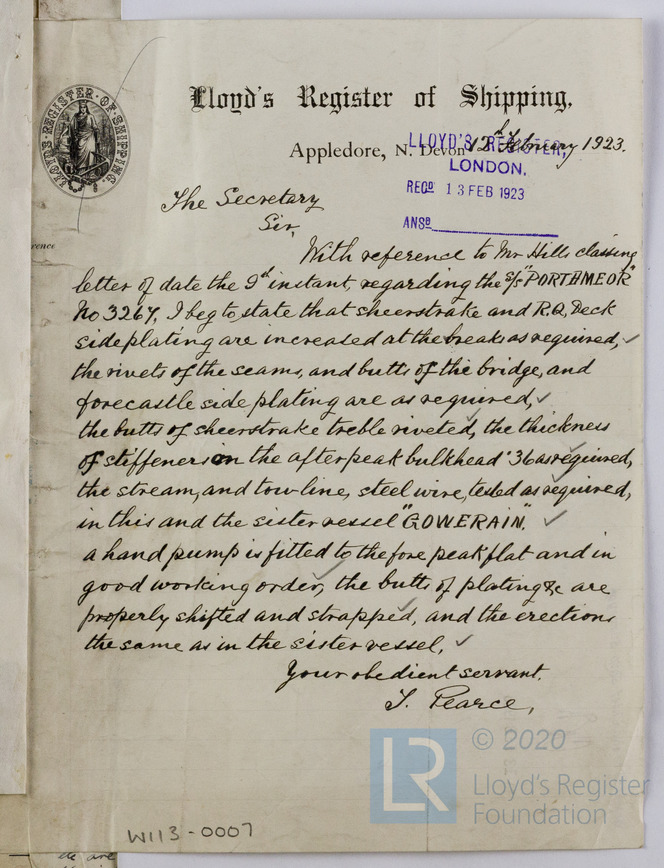 LLOYD'S · REGISTER · OF · SHIPPING
Lloyd's Register of Shipping,
Appledore, N. Devon 12th February 1923.
LLOYD'S REGISTER,
LONDON.
RECD 13 FEB 1923
ANSD
rence
The Secretary
Sir,
With reference to Mr Hills classing
letter of date the 9th instant, regarding the S/S "PORTHMEOR"
No 3267, I beg to state that sheerstrake and R.Q. Deck
side plating are increased at the breaks as required,
the rivets of the seams, and butts of the bridge, and
forecastle side plating are as required,
the butts of sheerstrake treble riveted, the thickness
of stiffeners on the after peak bulkhead ·36 as required,
the stream, and tow-line, steel wire, tested as required,
in this and the sister vessel "GOWERAIN".
a hand pump is fitted to the fore peak flat and in
good working order, the butts of plating &c are
properly shifted and strapped, and the erections
the same as in the sister vessel,
Your obedient servant.
J. Pearce,
LR
© 2020
Lloyd's Register
Foundation
W113-0007
are